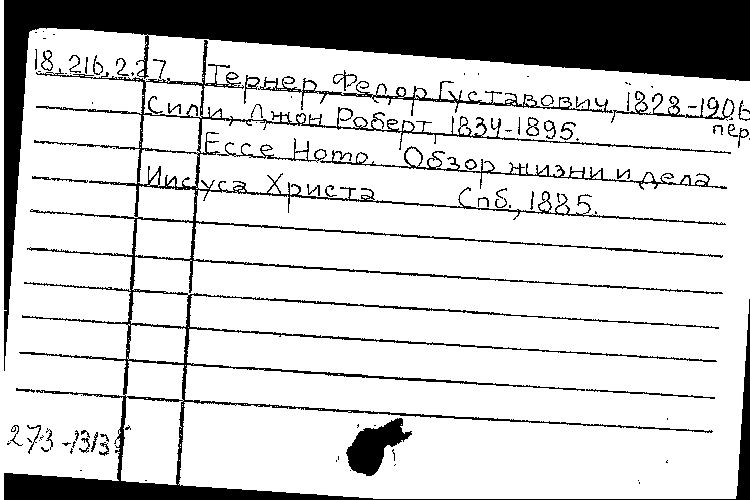 18.216.2.27. Тернер, Федор Густавович, 1828-1906
пер.
Сили, Джон Роберт, 1834-1895.
Ecce Homo. Обзор жизни и дела
Иисуса Христа Спб., 1885.
273-1313